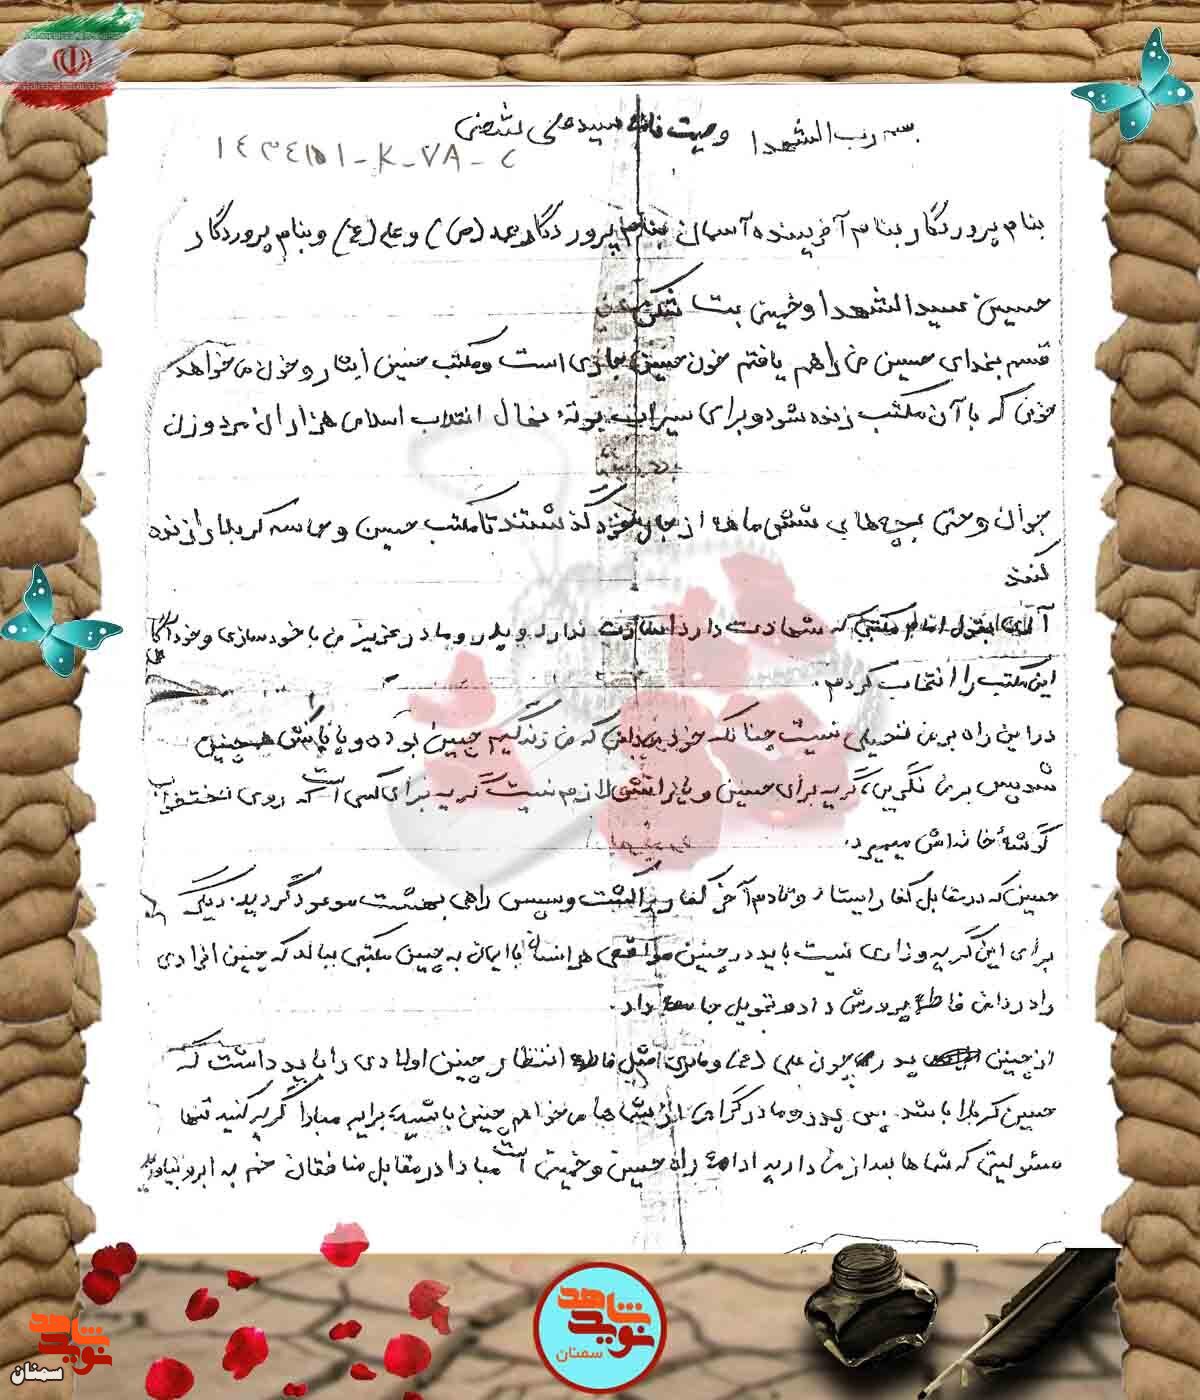 بسم رب الشهدا وصیت نامه سید علی
بنام پروردگار بنام آفریننده آسمان بنام پروردگار محمد (ص) و علی (ع) و بنام پروردگار
حسین سید الشهدا و خمینی بت شکن
قسم بخدای حسین من راهم یافتم خون حسین جاری است و مکتب حسین ایثار و خون می خواهد
خونی که با آن مکتب زنده شود و برای سیراب بوتهٔ نهال انقلاب اسلامی هزاران مرد و زن
جوان و حتی بچه های شش ماهه از جان خود گذشتند تا مکتب حسین و حماسه کربلا را زنده
کنند
آری بقول امام مکتبی که شهادت دارد اسارت ندارد و پدر و مادر عزیز من با خودسازی و خودآگاهی
این مکتب را انتخاب کردم.
در این راه بر من تحمیلی نیست چنانکه خود می دانی که من زندگیم حسین بوده و پایانش چنین
شد پس بر من نگریید، گریه برای حسین و یارانش لازم نیست گریه برای کسی است که روی تختخواب
گوشهٔ خانه اش میمیرد.
حسین که در مقابل کفار ایستاد و تا دم آخر کفار را کشت و سپس راهی بهشت موعود گردید. دیگر
برای این گریه و زاری نیست باید در چنین مواقعی هر انسان با ایمان به چنین مکتبی ببالد که چنین افرادی
را در دامن فاطمه پرورش داده و تحویل جامعه داد.
از چنین پدری چون علی (ع) و مادری مثل فاطمه انتظار چنین اولادی را باید داشت که
حسین کربلا باشد. پس پدر و مادر گرامی از شماها می خواهم چنین باشید، برایم مبادا گریه کنید تنها
مسئولیتی که شماها بعد از من دارید ادامهٔ راه حسین و خمینی است مبادا در مقابل منافقان خم به ابرو بیاورید
نوید شاهد
سمنان
نوید شاهد
سمنان